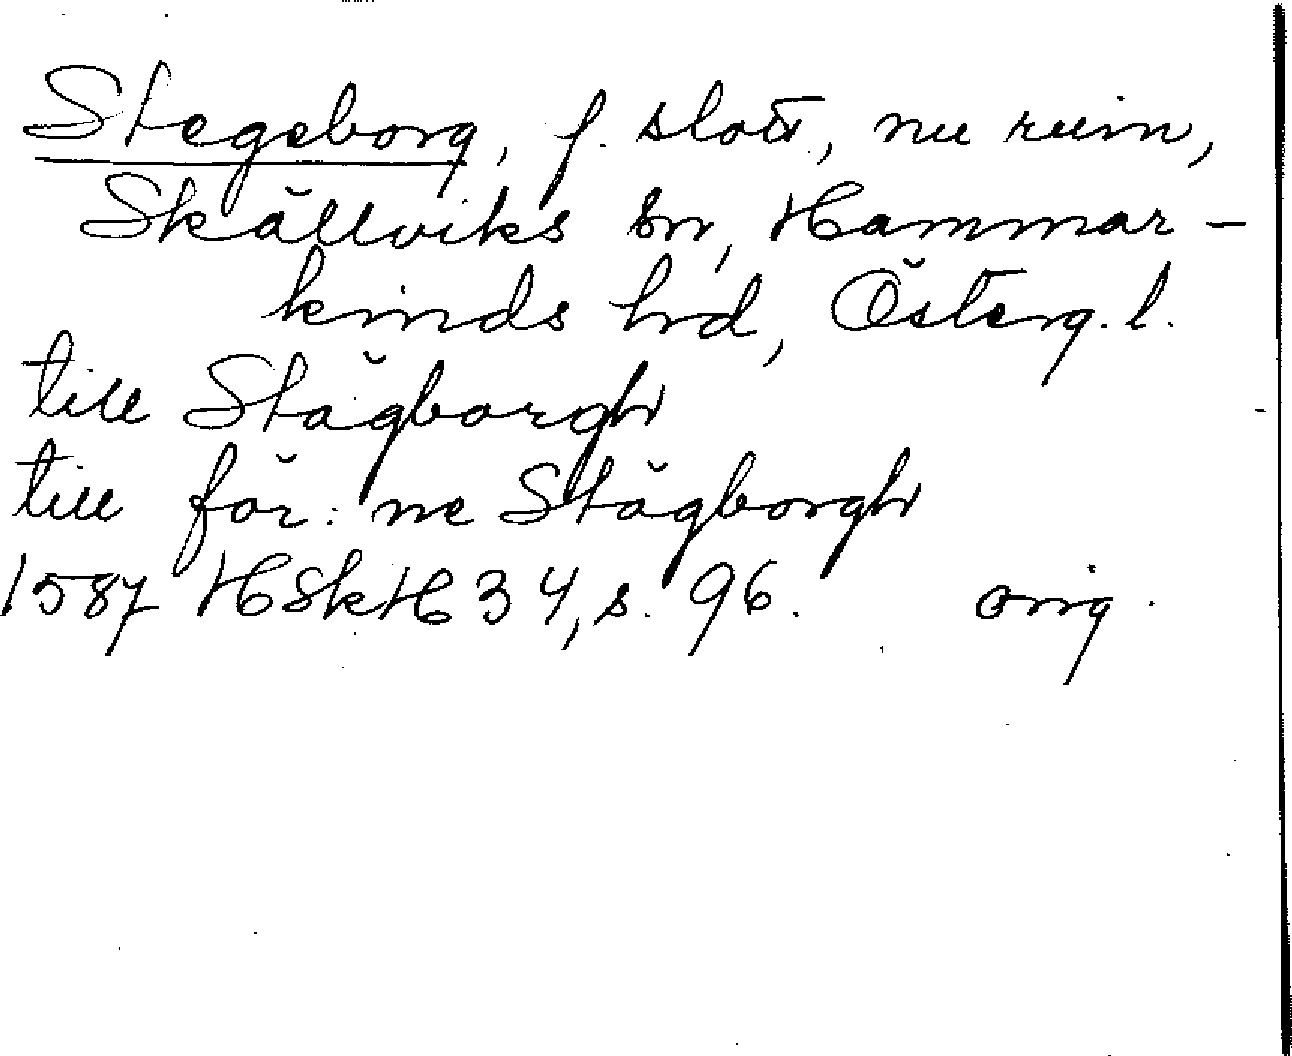 Stegeborg, f. slott, nu ruin,
Skällviks sn, Hammar-
kinds hd, Österg. l.
till Stägborgh
till för: ne Stägborgh
1587 HSkH 34, s. 96. orig.